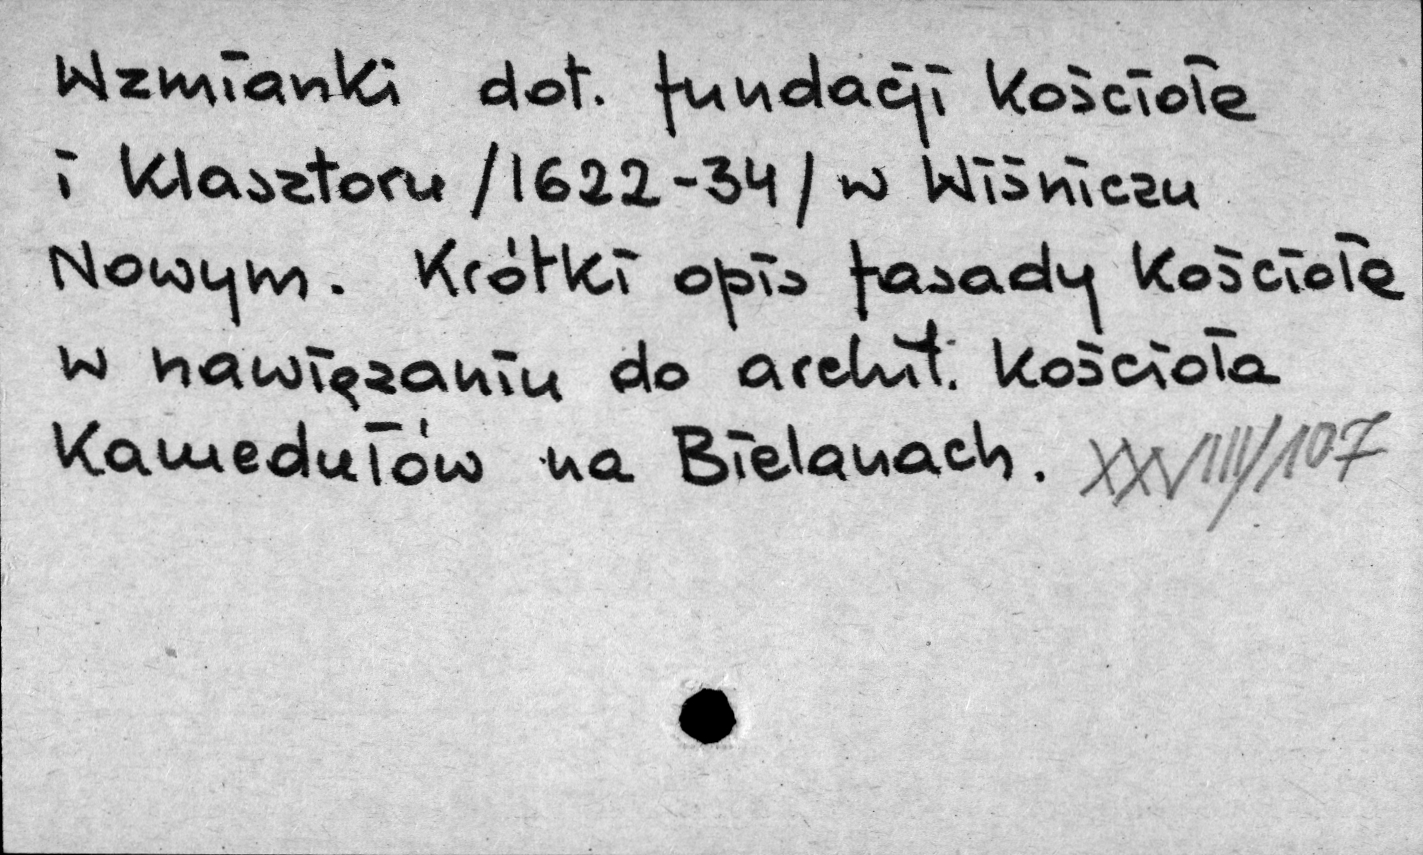 Wzmianki dot. fundacji Kościoła
i Klasztoru /1622-34/ w Wiśniczu
Nowym. Krótki opis fasady Kościoła
w nawiązaniu do archit. Kościoła
Kamedułów na Bielanach. XXVIII/107